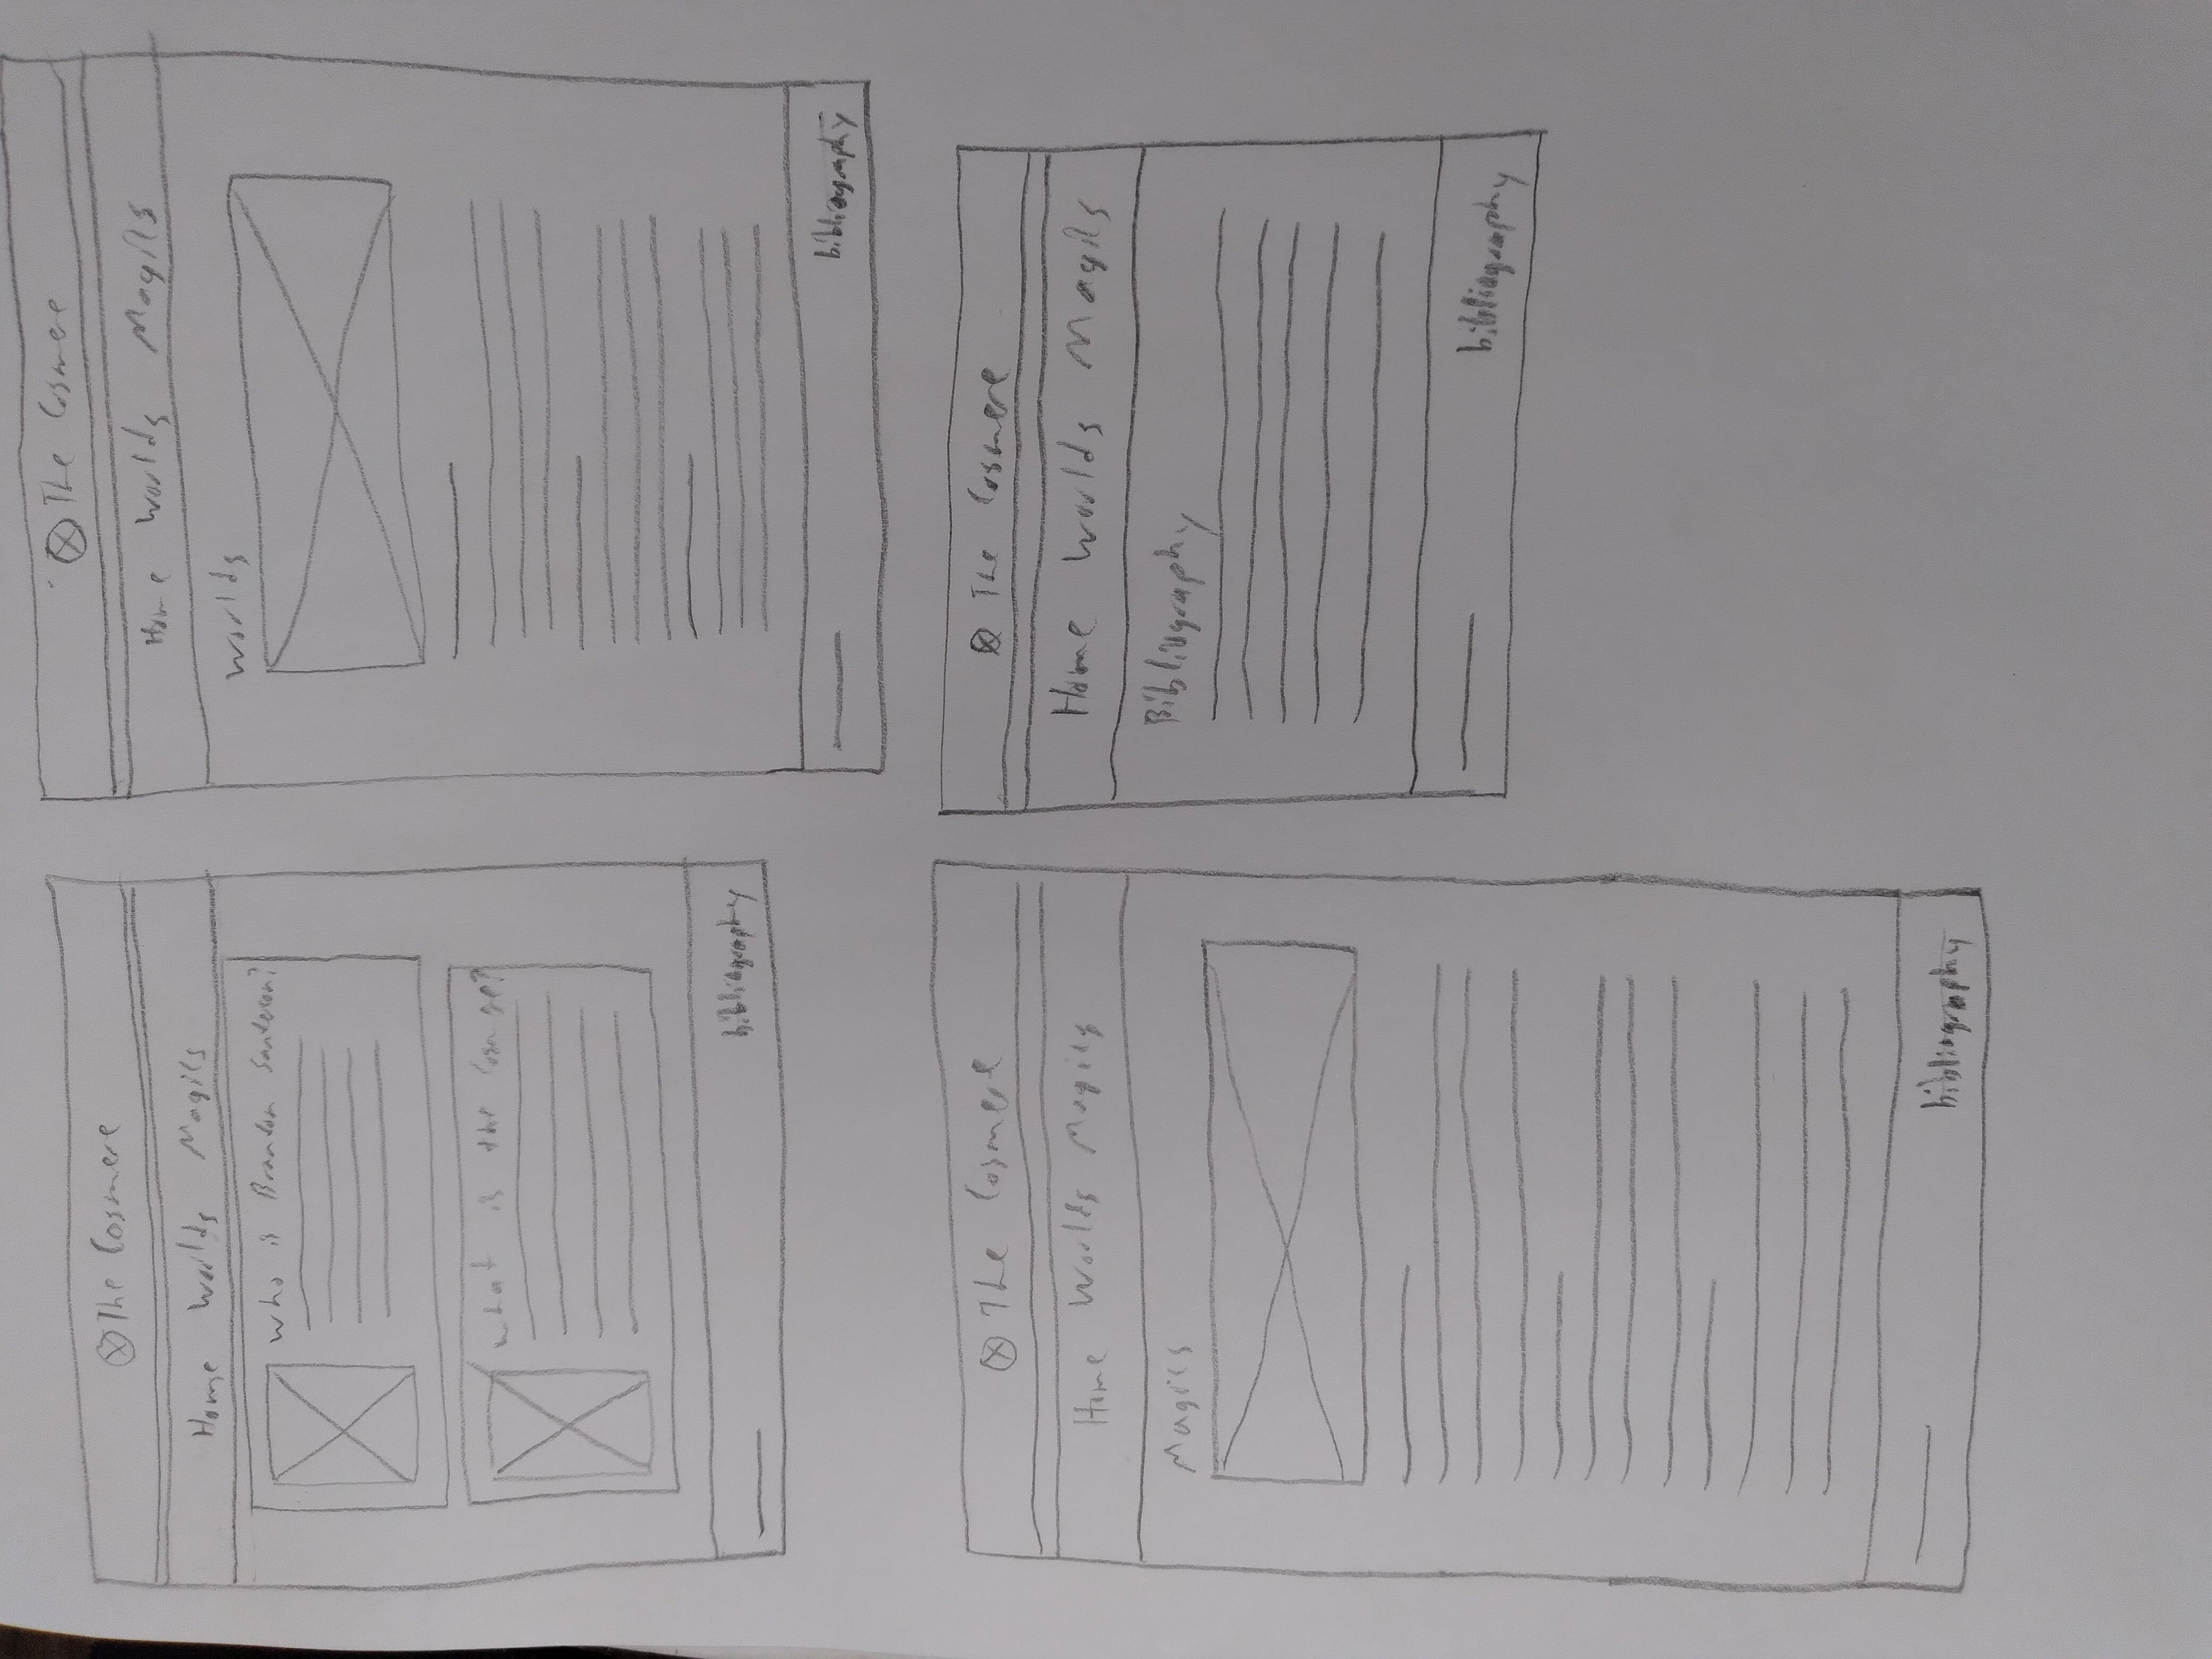 The Cosmere
Home Worlds Magics
Who is Brandon Sanderson?
What is the Cosmere?
bibliography
The Cosmere
Home Worlds Magics
Worlds
bibliography
The Cosmere
Home Worlds Magics
Magics
bibliography
The Cosmere
Home Worlds Magics
Bibliography
bibliography